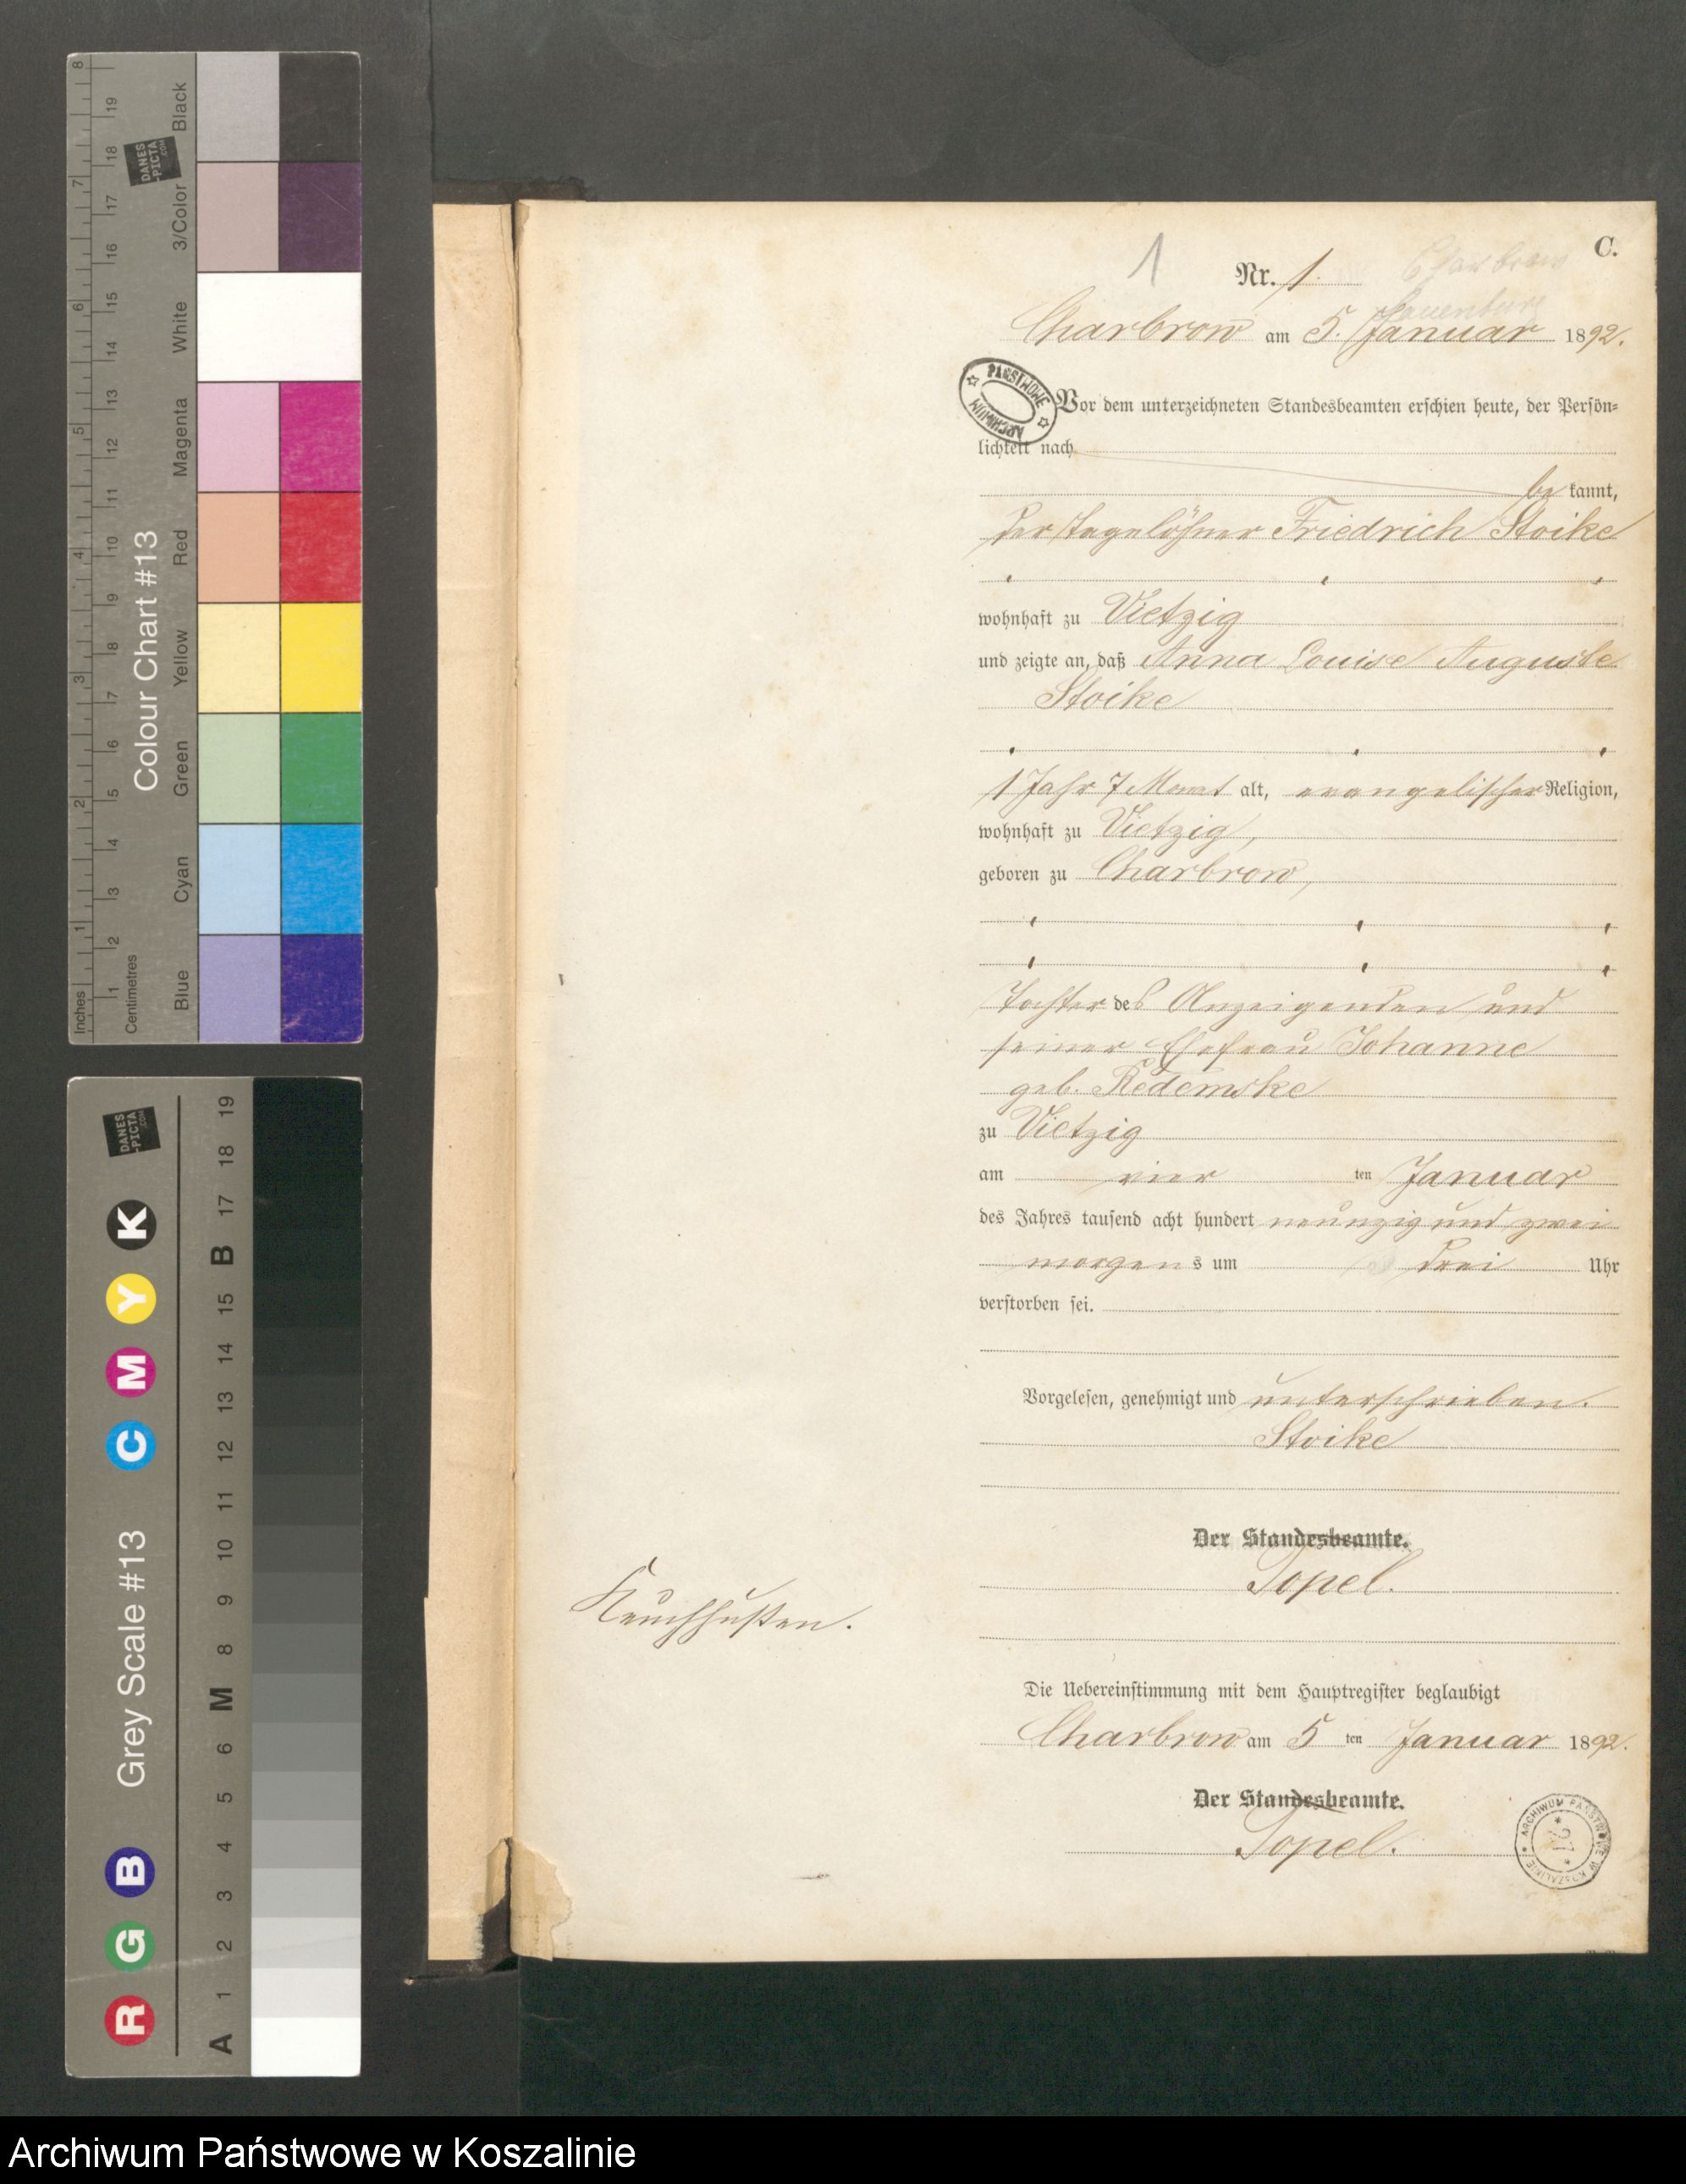 1
Nr. 1.
C.
Charbrow
Lauenburg
Charbrow am 5. Januar 1892.
PAŃSTWOWE ARCHIWUM
Vor dem unterzeichneten Standesbeamten erschien heute, der Persön-
lichkeit nach
be kannt,
der Tagelöhner Friedrich Stoike
wohnhaft zu Vietzig
und zeigte an, daß Anna Louise Auguste
Stoike
1 Jahr 7 Monat alt, evangelischer Religion,
wohnhaft zu Vietzig,
geboren zu Charbrow,
Tochter des Anzeigenden und
seiner Ehefrau Johanne
geb. Redemske
zu Vietzig
am vier ten Januar
des Jahres tausend acht hundert neunzig und zwei
morgens um drei Uhr
verstorben sei.
Vorgelesen, genehmigt und unterschrieben.
Stoike
Der Standesbeamte.
Topel.
Keuchhusten.
Die Uebereinstimmung mit dem Hauptregister beglaubigt
Charbrow am 5 ten Januar 1892.
Der Standesbeamte.
Topel.
ARCHIWUM PAŃSTWOWE W KOSZALINIE
Colour Chart #13
DANES
-PICTA
.COM
Black
3/Color
White
Magenta
Red
Yellow
Green
Cyan
Blue
Inches 1 2 3 4 5 6 7 8
Centimetres 1 2 3 4 5 6 7 8 9 10 11 12 13 14 15 16 17 18 19
Grey Scale #13
DANES
-PICTA
.COM
R G B C M Y K
A 1 2 3 4 5 6 M 8 9 10 11 12 13 14 15 B 17 18 19
Archiwum Państwowe w Koszalinie